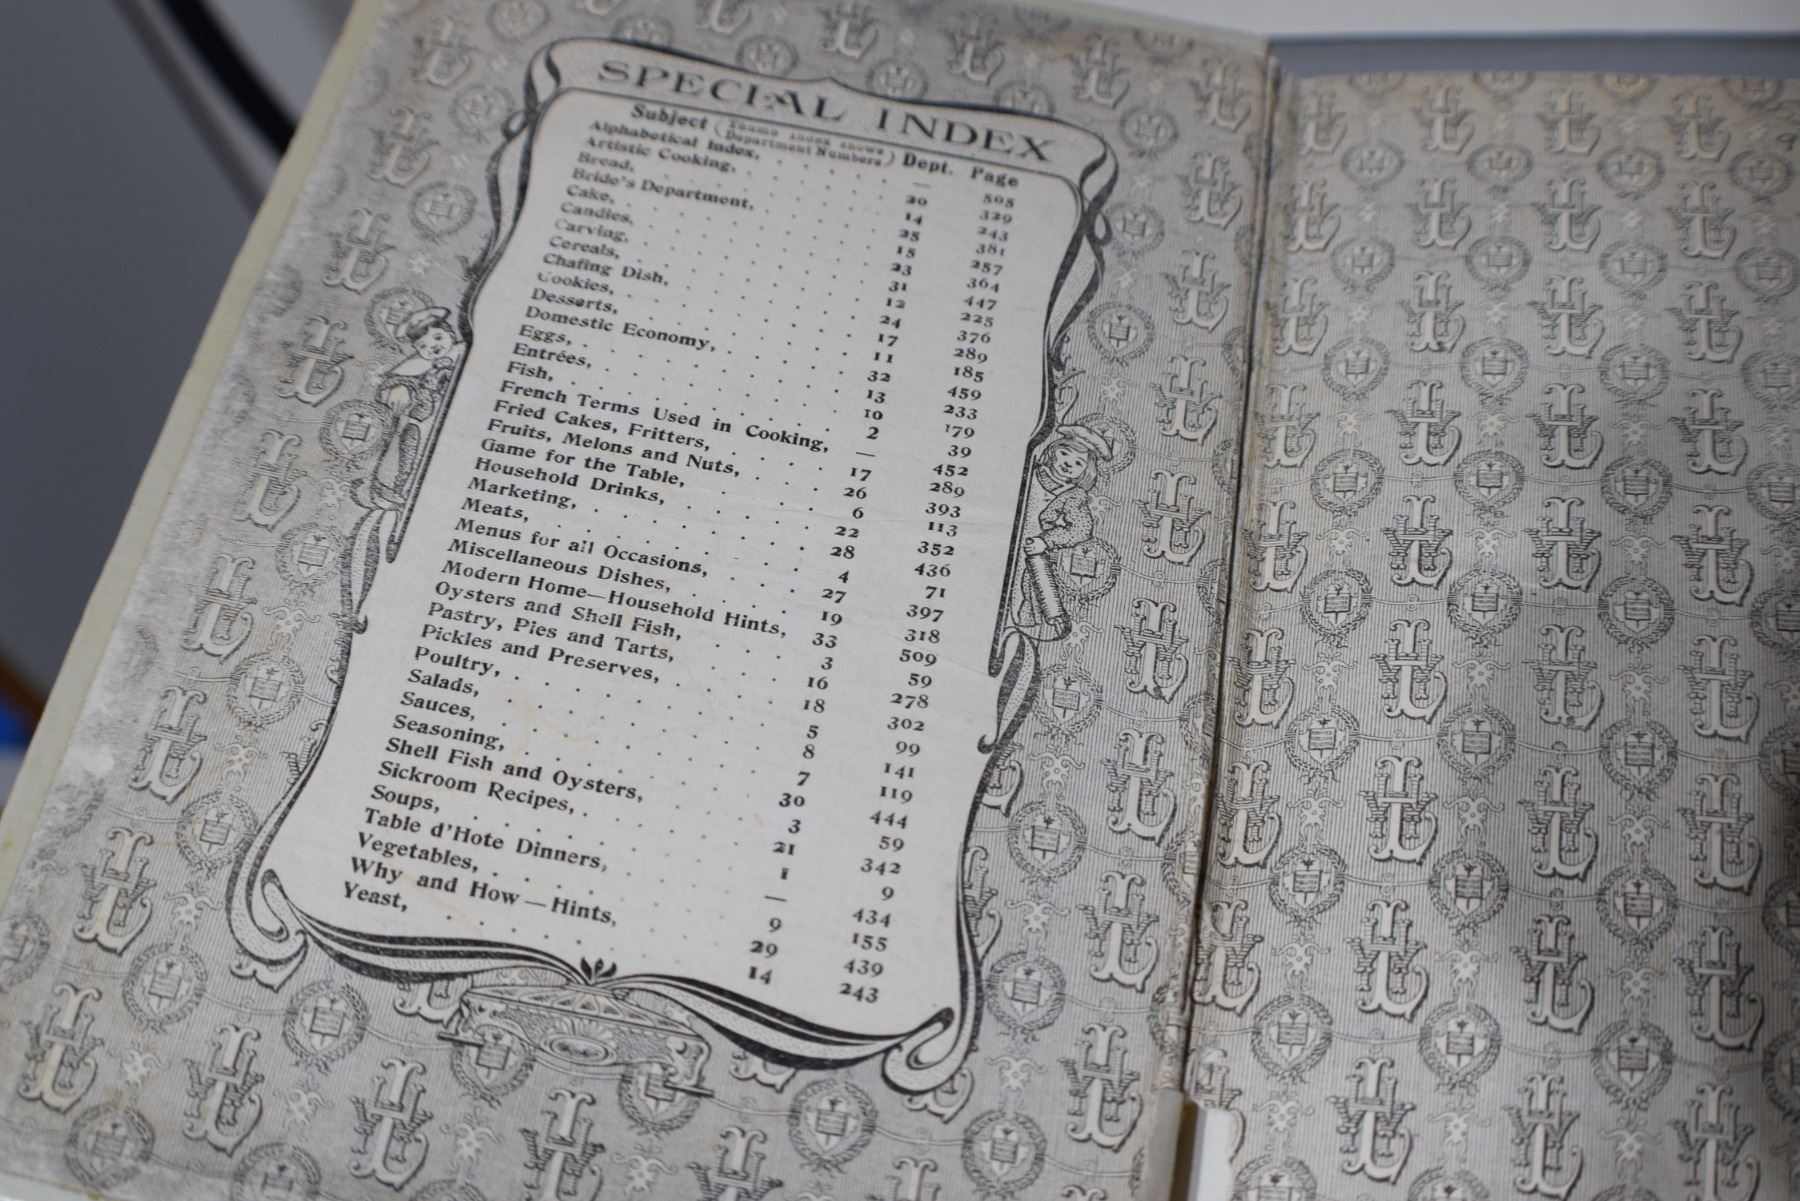 SPECIAL INDEX
Subject (Thumb index shows Department Numbers) Dept. Page
Alphabetical Index, — 505
Artistic Cooking, 20 329
Bread, 14 243
Bride's Department, 25 381
Cake, 15 257
Candies, 23 364
Carving, 31 447
Cereals, 12 225
Chafing Dish, 24 376
Cookies, 17 289
Desserts, 11 185
Domestic Economy, 32 459
Eggs, 13 233
Entrées, 10 179
Fish, 2 39
French Terms Used in Cooking, — 452
Fried Cakes, Fritters, 17 289
Fruits, Melons and Nuts, 26 393
Game for the Table, 6 113
Household Drinks, 22 352
Marketing, 28 436
Meats, 4 71
Menus for all Occasions, 27 397
Miscellaneous Dishes, 19 318
Modern Home—Household Hints, 33 509
Oysters and Shell Fish, 3 59
Pastry, Pies and Tarts, 16 278
Pickles and Preserves, 18 302
Poultry, 5 99
Salads, 8 141
Sauces, 7 119
Seasoning, 30 444
Shell Fish and Oysters, 3 59
Sickroom Recipes, 21 342
Soups, 1 9
Table d'Hote Dinners, — 434
Vegetables, 9 155
Why and How—Hints, 29 439
Yeast, 14 243